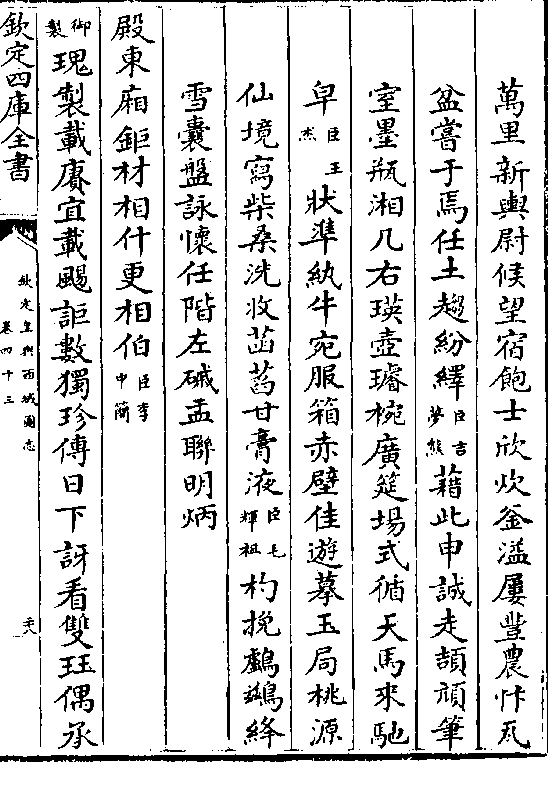 萬里新輿尉候望宿飽士欣炊釜溢屢豐農忭瓦
盆嘗于焉任土趨紛繹臣吉夢熊藉此申誠走頡頏筆
室墨瓶湘几右瑛壺璿椀廣筵場式循天馬來馳
皁臣王杰狀準紈牛宛服箱赤壁佳遊摹玉局桃源
仙境寫柴桑洗收菡萏甘膏液臣毛輝祖杓挽鸕鷀絳
雪囊盤詠懷任階左磩盂聯明炳
殿東廂鉅材相什更相伯臣李中簡
御製瑰製載賡宜載颺詎數獨珍傳日下訝看雙珏偶承
欽定四庫全書
欽定皇輿西域圖志
卷四十三